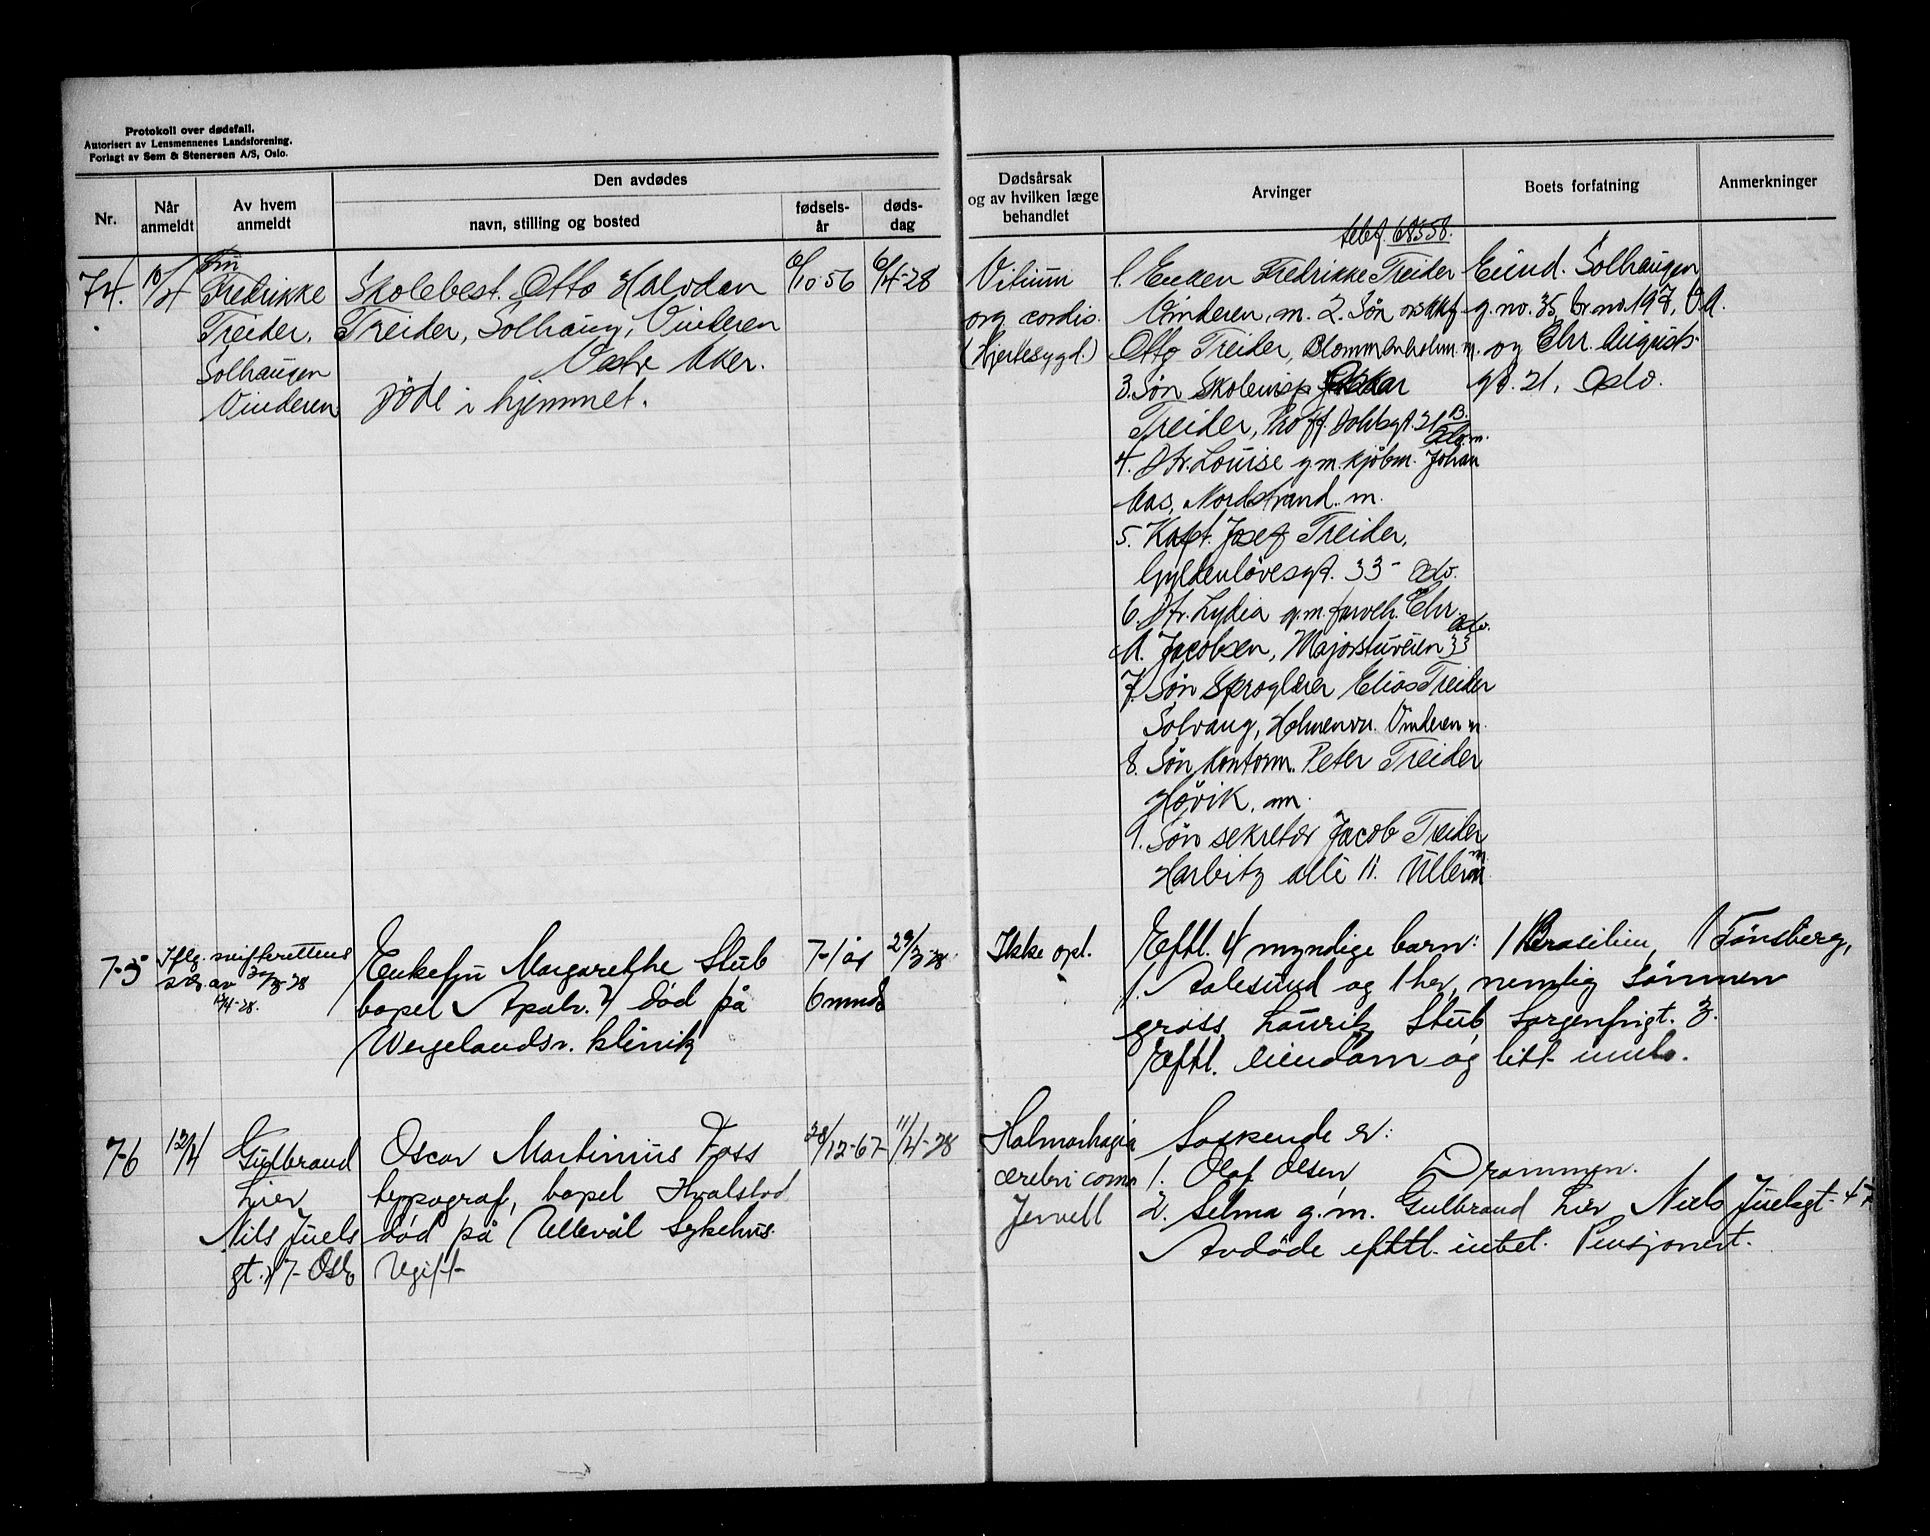 Protokoll over dødsfall.
Autorisert av Lensmennenes Landsforening.
Forlagt av Sem & Stenersen A/S, Oslo.
Nr.
Når anmeldt
Av hvem anmeldt
Den avdødes
navn, stilling og bosted
fødsels-år
døds-dag
Dødsårsak og av hvilken læge behandlet
Arvinger
Boets forfatning
Anmerkninger
74.
10/4
Fru
Fredrikke
Treider,
Solhaugen
Vinderen
Skolebest. Otto Halvdan
Treider, Solhaug, Vinderen
Vestr Aker.
Døde i hjemmet.
6/10-56
6/4-28
Vitium
org cordis.
(Hjertesygd.)
telef. 68558.
1. Enken Fredrikke Treider
Vinderen, m. 2. Søn
Otto Treider, Blommenholm. m.
3. Søn Skoleinsp Oskar
Treider, Proff. Dahlsgt. 21 B.
Oslo. m.
4. Dtr. Louise g.m. kjøbm. Johan
Aas, Nordstrand. m.
5. Kapt. Josef Treider,
Gyldenløvesgt. 33- Oslo.
6. Dtr. Lydia g.m. farveh. Chr.
A. Jacobsen, Majorstuveien 33
Oslo.
7. Søn Sproglærer Elias Treider
Solvang, Holmenvn. Vinderen m.
8. Søn kontorm. Peter Treider
Høvik. m.
9. Søn sekretær Jacob Treider
Harbitz allé 11. Ullern
m.
Eiend. Solhaugen
g.no. 35, br.no. 197, V.A.
og Chr. Augusts-
gt. 21, Oslo.
75
Iflg. skifterettens
skr. av 30/3-28
12/4-28.
Enkefru Margarethe Stub
bopel Apalv. 7 død på
Wergelandsv. klinik
71 år
6 mndr
29/3-28.
Ikke opl.
Eftl. 4 myndige barn: 1 Brasilien, 1 Tønsberg,
1. Aalesund og 1 her, nemlig sønnen
gross. Lauritz Stub, Sorgenfrigt. 3.
Eftl. eiendom og litt innbo.
76
12/4
Gulbrand
Lier
Nils Juels
gt. 47- Oslo
Oscar Martinius Foss
typograf, bopel Hvalstad
død på Ullevål Sykehus.
Ugift-
28/12-67-
11/4-28
Halmorhagia
cerebri coma
Jervell
Søskende er:
1. Olaf Olsen, Drammen.
2. Selma g.m. Gulbrand Lier Niels Juelsgt. 47
Avdøde efterl. intet. Pensjonert.